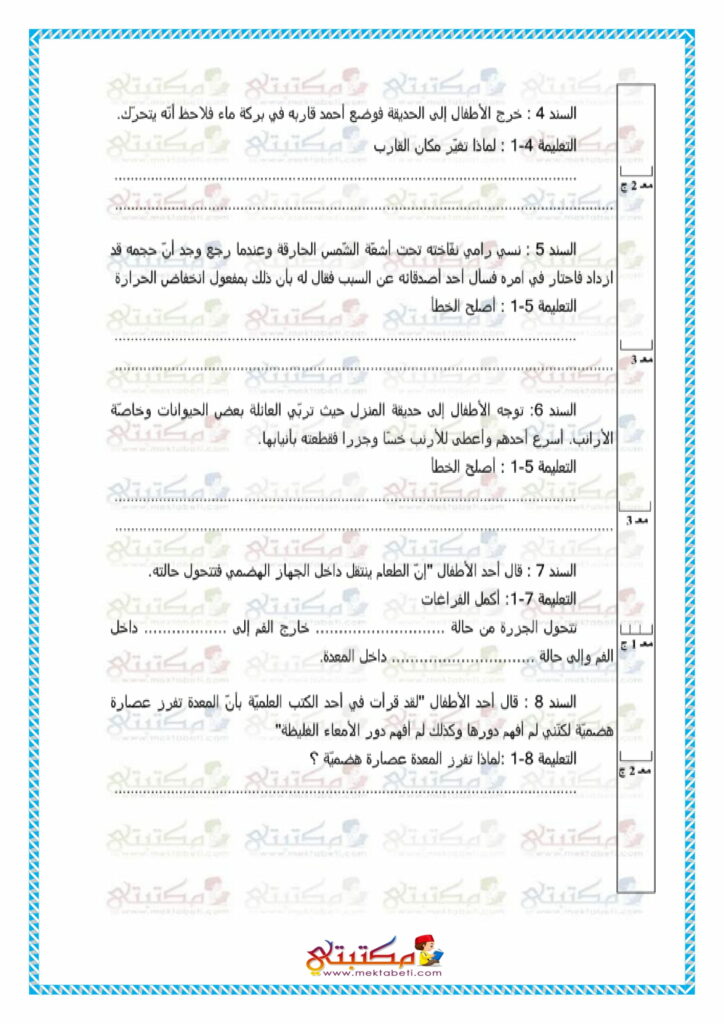 السند 4 : خرج الأطفال إلى الحديقة فوضع أحمد قاربه في بركة ماء فلاحظ أنّه يتحرّك.
التعليمة 4-1 : لماذا تغيّر مكان القارب
............................................................
معـ 2 ج
............................................................
السند 5 : نسي رامي نفّاخته تحت أشعّة الشّمس الحارقة وعندما رجع وجد أنّ حجمه قد
ازداد فاحتار في امره فسأل أحد أصدقائه عن السبب فقال له بأن ذلك بمفعول انخفاض الحرارة
التعليمة 5-1 : أصلح الخطأ
............................................................
معـ 3
............................................................
السند 6: توجه الأطفال إلى حديقة المنزل حيث تربّي العائلة بعض الحيوانات وخاصّة
الأرانب. أسرع أحدهم وأعطى للأرنب خسّا وجزرا فقطعته بأنيابها.
التعليمة 5-1 : أصلح الخطأ
............................................................
معـ 3
............................................................
السند 7 : قال أحد الأطفال "إنّ الطعام ينتقل داخل الجهاز الهضمي فتتحول حالته.
التعليمة 7-1: أكمل الفراغات
تتحول الجزرة من حالة ............................ خارج الفم إلى .................. داخل
معـ 1 ج
الفم وإلى حالة ............................... داخل المعدة.
السند 8 : قال أحد الأطفال "لقد قرأت في أحد الكتب العلميّة بأنّ المعدة تفرز عصارة
هضميّة لكنّني لم أفهم دورها وكذلك لم أفهم دور الأمعاء الغليظة"
التعليمة 8-1 :لماذا تفرز المعدة عصارة هضميّة ؟
معـ 2 ج
............................................................
مكتبتي
www.mektabeti.com